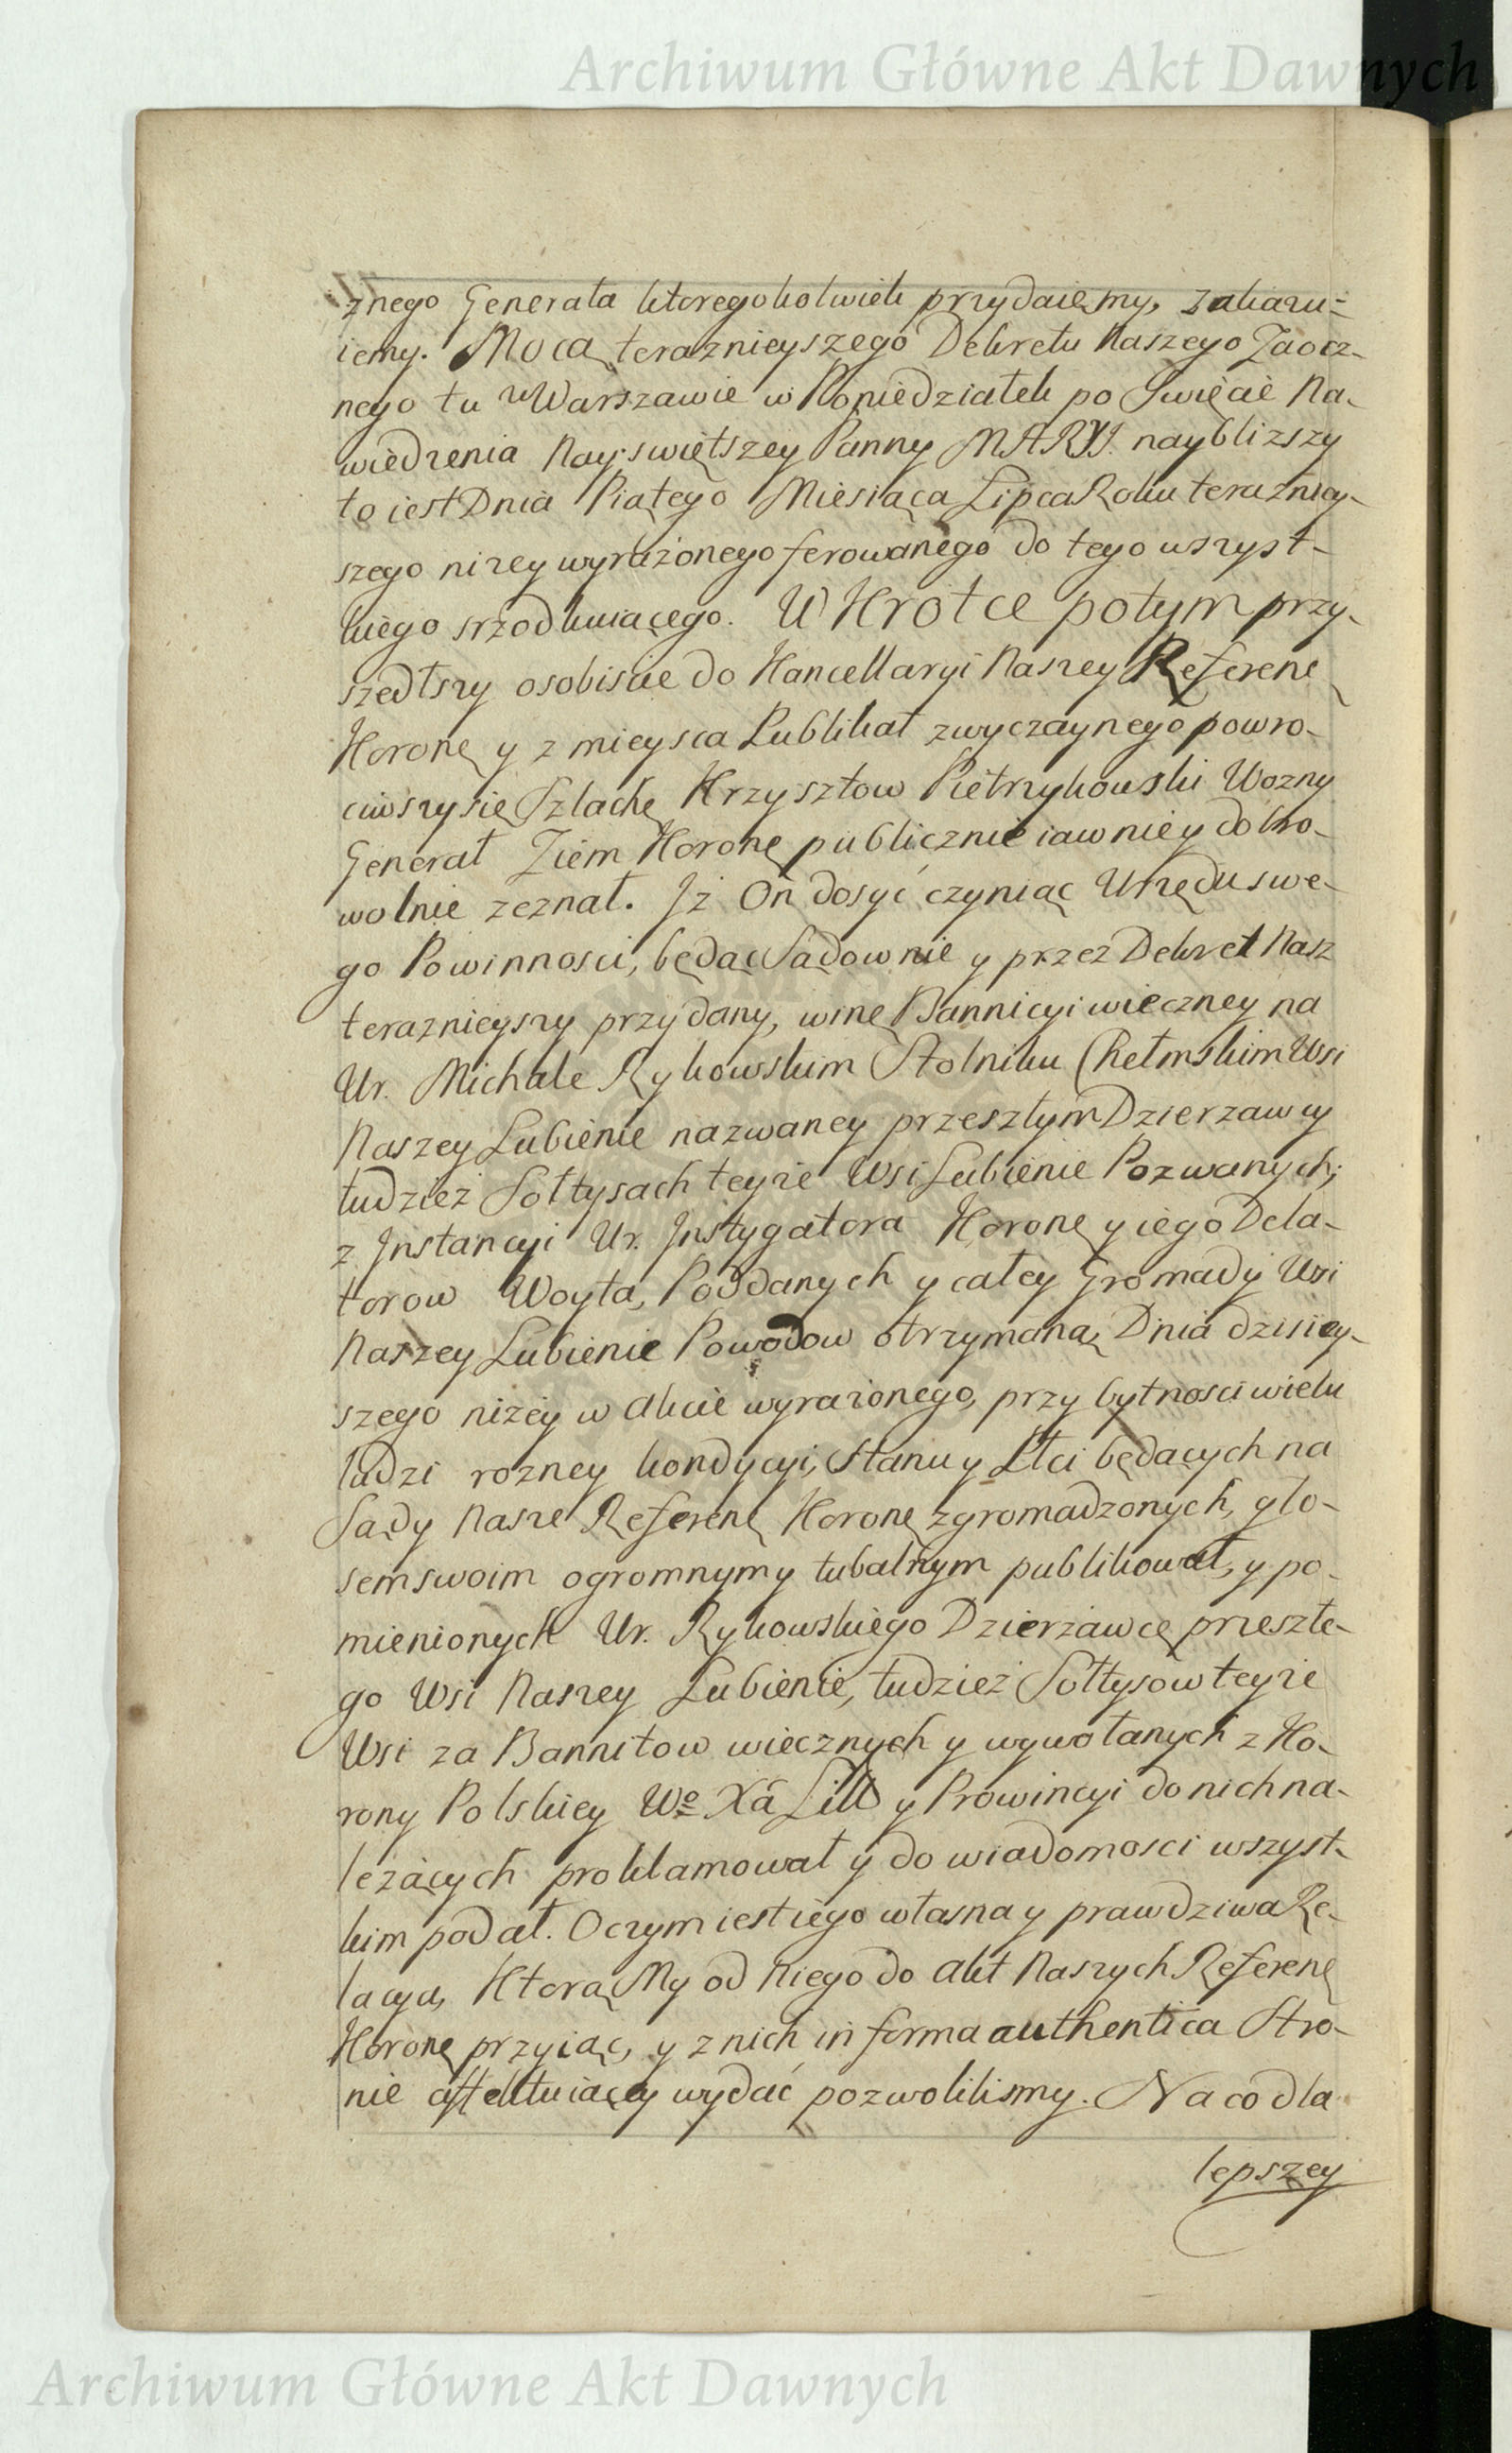 Archiwum Główne Akt Dawnych
znego Generała ktoregokolwiek przydaięmy, zakazu=
iemy. Mocą teraznieyszego Dekretu Naszego Zaocz-
nego tu w Warszawie w Poniedziałek po Swięcie Na-
wiedzenia Nayswiętszey Panny MARYI. naybliższy
to iest Dnia Piątego Miesiąca Lipca Roku teraźniey-
szego niżey wyrażonego ferowanego do tego wszyst-
kiego srzodkuiącego. W Krotce potym przy-
szedłszy osobiscie do Kancellaryi Naszey Referenc
Koronę y z mieysca Publikat zwyczaynego powro-
ciwszy się Szlachę Krzysztow Pietrzykowski Wozny
Generał Ziem Koronę publicznie iawnie y dobro-
wolnie zeznał. Jż On dosyć czyniąc Urzędu swe-
go Powinnosci, będąc Sądownie y przez Dekret Nasz
teraznieyszy przydany, winę Bannicyi wieczney na
Ur. Michale Rykowskim Stolniku Chełmskim Wsi
Naszey Lubienie nazwaney przeszłym Dzierzawcy
tudzież Sołtysach teyże Wsi Lubienie Pozwanych;
z Instancyi Ur. Instygatora Koronę y iego Dela-
torow Woyta, Poddanych y całey Gromady Wsi
Naszey Lubienie Powodow otrzymaną, Dnia dzisiey-
szego niżey w akcie wyrażonego, przy bytnosci wielu
ludzi rozney kondycyi, stanu y Płci będących na
Sądy Nasze Referenę Koronę zgromadzonych, gło-
sem swoim ogromnym y tubalnym publikował, y po-
mienionych Ur. Rykowskiego Dzierżawcę przeszłe-
go Wsi Naszey Lubienie, tudzież Sołtysow teyże
Wsi za Bannitow wiecznych y wywołanych z Ko-
rony Polskiey Wo Xa Litt y Prowincyi do nich na-
leżących proklamował y do wiadomosci wszyst-
kim podał. O czym iest iego własna y prawdziwa Re-
lacya, Ktorą My od niego do akt Naszych Referenę
Koronę przyiąć, y z nich in forma authentica Stro-
nie affektuiącey wydać pozwolilismy. Na co dla
lepszey
Archiwum Główne Akt Dawnych